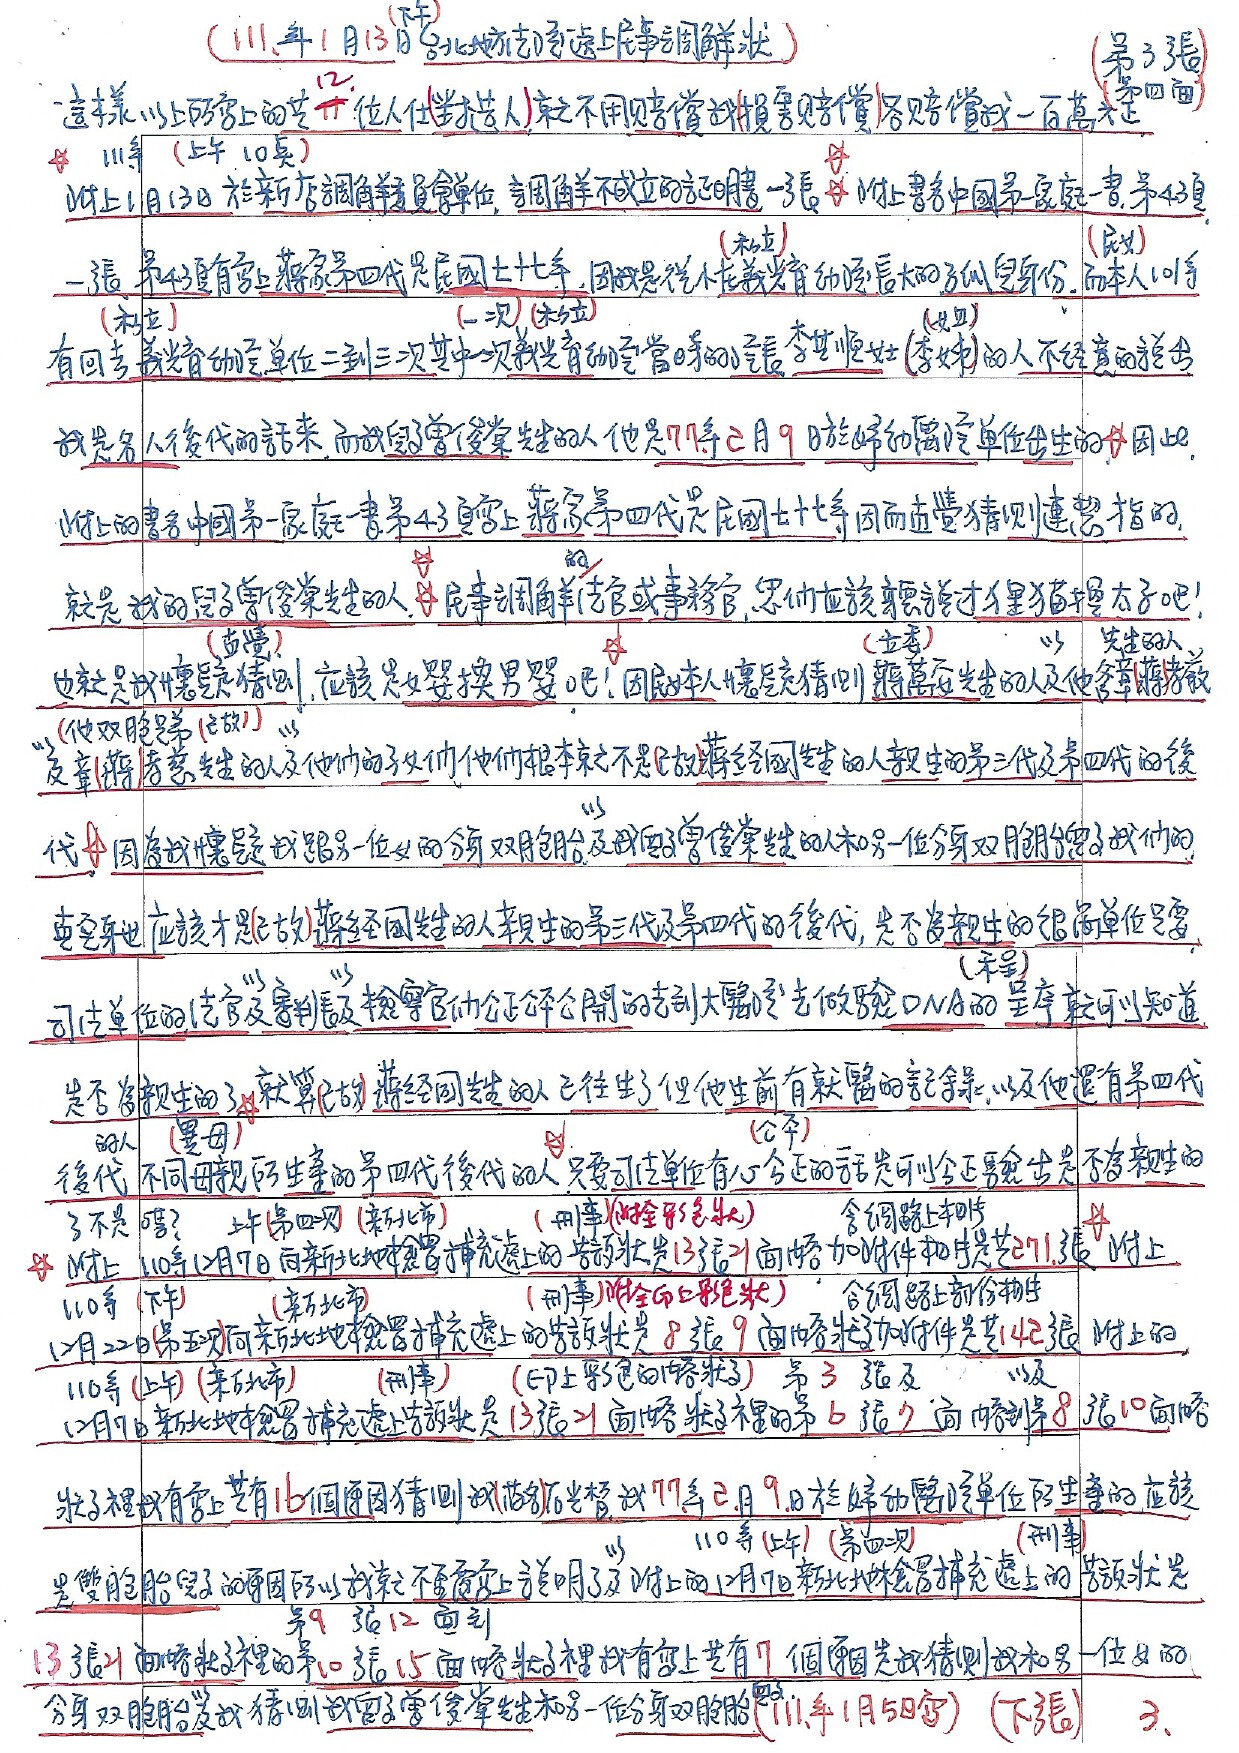 (下午)
(111.年1月13日台北地方法院遞上民事調解狀)
(第3張)
(第四面)
12.
這樣以上所寫上的共 位人仕(對造人)就不用賠償我(損害賠償)各賠償我一百萬元
111年 (上午10點)
附上1月13日於新店調解委員會單位,調解不成立的証明書一張☆附上書名中國第一家庭一書,第43頁
(私立) (民女)
一張,第43頁有寫上蔣家第四代是民國七十七年,因我是從小在義光育幼院長大的孤兒身份,而本人101年
(私立) (一次)(私立) (姐)
有回去義光育幼院單位二到三次其中一次義光育幼院當時的院長李其恒女士(李姊)的人不經意的說出
我是名人後代的話來,而我兒子曾俊棠先生的人他是77年2月9日於婦幼醫院單位出生的☆因上
附上的書名中國第一家庭一書第43頁寫上蔣家第四代是民國七十七年因而直覺猜測連想才指的,
就是我的兒子曾俊棠先生的人,☆民事調解的法官或事務官,您們應該聽說過狸貓換太子吧!
(直覺) (立委) 以 先生的人
也就是我懷疑猜測,應該是女嬰換男嬰吧!因民女本人懷疑猜測蔣萬安先生的人及他爸章(蔣)孝嚴
(他双胞兄弟(已故))
以及章(蔣)孝慈先生的人及他們的子女們他們根本就不是(已故)蔣經國先生的人親生的第三代及第四代的後
以
代☆因為我懷疑我跟另一位女的分身双胞胎及我兒子曾俊棠先生的人和另一位分身双胞胎兒子我們的
真正身世應該才是(已故)蔣經國先生的人親生的第三代及第四代的後代,是否為親生的很簡單只要
以 以 (采呈)
司法單位的法官及審判長及檢察官們公正公平公開的去到大醫院去做驗DNA的呈序就可以知道
是否為親生的了☆就算(已故)蔣經國先生的人已往生了但他生前有就醫的記錄,以及他還有第四代
的人 (異母) (公平)
後代不同母親所生產的第四代後代的人,只要司法單位有心公正的話是可以公正驗出是否為親生的
了不是嗎? 上午(第四次)(新北市) (刑事)(附全彩色狀) 含網路上相片
☆附上110年12月7日向新北地檢署補充遞上的告訴狀是13張21面內容加附件相片是共271張☆附上
110年(下午) (新北市) (刑事)(附全面上彩色狀) 含網路上部份相片
12月22日(第五次)向新北地檢署補充遞上的告訴狀是8張9面內容狀子加附件是共142張附上的
110年(上午)(新北市) (刑事) (印上彩色的內容狀子) 第3張及 以及
12月7日新北地檢署補充遞上告訴狀是13張21面內容狀子裡的第6張7面內容到第8張10面內容
狀子裡我有寫上共有16個原因猜測我77年2月9日於婦幼醫院單位所生產的應該
以 110年(上午)(第四次) (刑事)
是雙胞胎兒子的原因所以我就不重覆寫上說明了及附上的12月7日新北地檢署補充遞上的告訴狀是
第9張12面到
13張21面內容狀子裡的第10張15面內容狀子裡我有寫上共有7個原因是我猜測我和另一位女的
分身双胞胎及我猜測我兒子曾俊棠先生和另一位分身双胞胎兒子(111.年1月5日寫)(下張) 3.